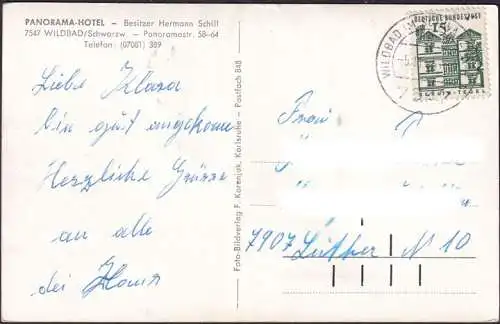 PANORAMA-HOTEL – Besitzer Hermann Schill
7547 WILDBAD/Schwarzw. – Panoramastr. 58–64
Telefon: (07081) 389
Liebe Klara
bin gut angekom
Herzliche Grüsse
an alle
dei
Foto-Bildverlag F. Karenjuk, Karlsruhe – Postfach 848
DEUTSCHE BUNDESPOST
15
BERLIN-TEGEL
WILDBAD
Frau
7907 N 10